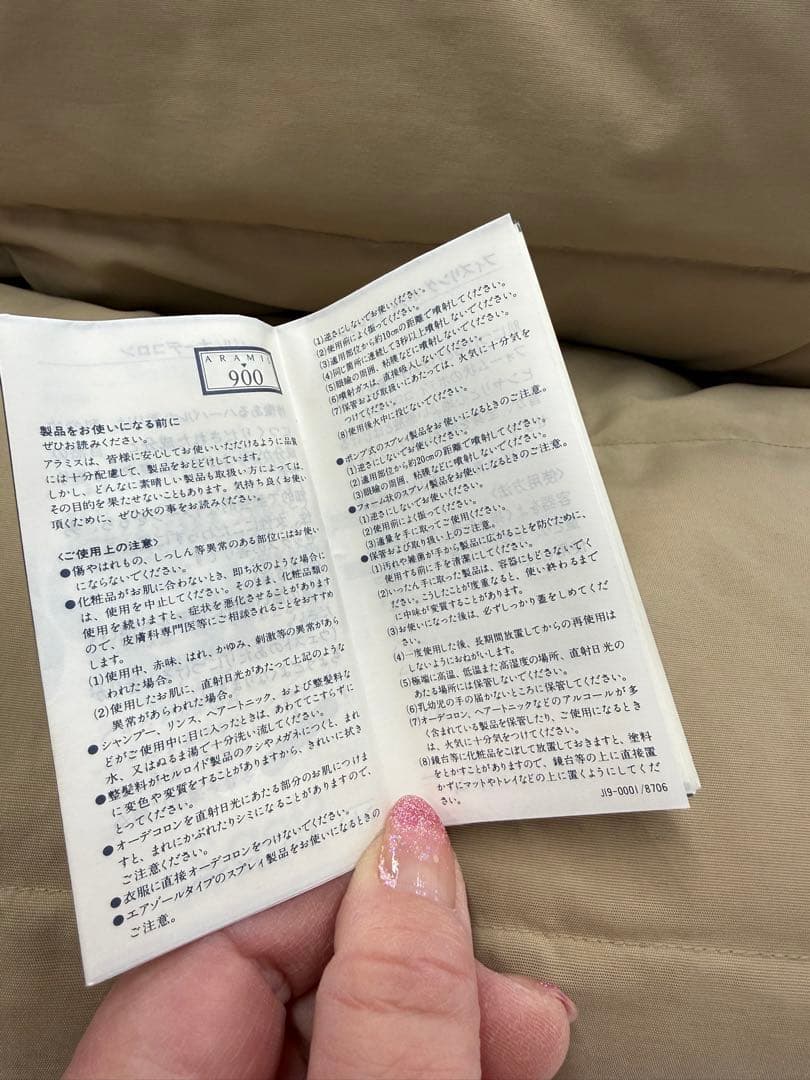 ARAMIS
900
製品をお使いになる前に
ぜひお読みください。
アラミスは、皆様に安心してお使いいただけるように品質
には十分配慮して、製品をおとどけしています。
しかし、どんなに素晴しい製品も取扱い方によっては、
その目的を果たせないこともあります。気持ち良くお使い
頂くために、ぜひ次の事をお読みください。
〈ご使用上の注意〉
●傷やはれもの、しっしん等異常のある部位にはお使い
にならないでください。
●化粧品がお肌に合わないとき、即ち次のような場合に
は、使用を中止してください。そのまま、化粧品類の
使用を続けますと、症状を悪化させることがあります
ので、皮膚科専門医等にご相談されることをおすすめ
します。
(1)使用中、赤味、はれ、かゆみ、刺激等の異常があら
われた場合。
(2)使用したお肌に、直射日光があたって上記のような
異常があらわれた場合。
●シャンプー、リンス、ヘアートニック、および整髪料な
どがご使用中に目に入ったときは、あわててこすらずに
水、又はぬるま湯で十分洗い流してください。
●整髪料がセルロイド製品のクシやメガネにつくと、まれ
に変色や変質をすることがありますから、きれいに拭き
とってください。
●オーデコロンを直射日光にあたる部分のお肌につけま
すと、まれにかぶれたりシミになることがありますので、
ご注意ください。
●衣服に直接オーデコロンをつけないでください。
●エアゾールタイプのスプレィ製品をお使いになるときの
ご注意。
(1)逆さにしないでお使いください。
(2)使用前によく振ってください。
(3)適用部位から約10cmの距離で噴射してください。
(4)同じ箇所に連続して3秒以上噴射しないでください。
(5)眼瞼の周囲、粘膜などに噴射しないでください。
(6)噴射ガスは、直接吸入しないでください。
(7)保管および取扱いにあたっては、火気に十分気を
つけてください。
(8)使用後火中に投じないでください。
●ポンプ式のスプレィ製品をお使いになるときのご注意。
(1)逆さにしないでお使いください。
(2)適用部位から約20cmの距離で噴射してください。
(3)眼瞼の周囲、粘膜などに噴射しないでください。
●フォーム状のスプレィ製品をお使いになるときのご注意。
(1)逆さにしないでお使いください。
(2)使用前によく振ってください。
(3)適量を手に取ってご使用ください。
●保管および取り扱い上のご注意。
(1)汚れや雑菌が手から製品に広がることを防ぐために、
使用する前に手を清潔にしてください。
(2)いったん手に取った製品は、容器にもどさないでく
ださい。こうしたことが度重なると、使い終わるまで
に中味が変質することがあります。
(3)お使いになった後は、必ずしっかり蓋をしめてくだ
さい。
(4)一度使用した後、長期間放置してからの再使用は
しないようにおねがいします。
(5)極端に高温、低温また高湿度の場所、直射日光の
あたる場所には保管しないでください。
(6)乳幼児の手の届かないところに保管してください。
(7)オーデコロン、ヘアートニックなどのアルコールが多
く含まれている製品を保管したり、ご使用になるとき
は、火気に十分気をつけてください。
(8)鏡台等に化粧品をこぼして放置しておきますと、塗料
をとかすことがありますので、鏡台等の上に直接置
かずにマットやトレイなどの上に置くようにしてくだ
さい。
JI9-0001/8706